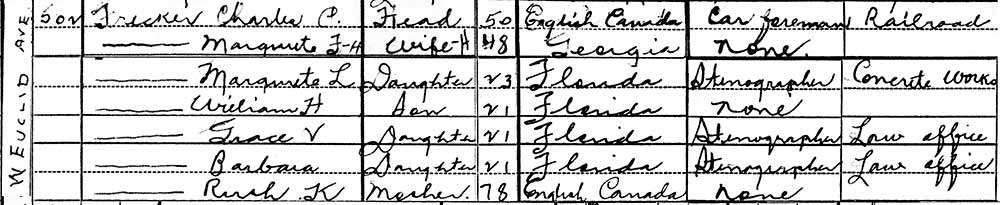 W EUCLID AVE
502 Tricker Charles P. Head 50 English Canada Car foreman Railroad
Marqurete F-H Wife-H 48 Georgia None
Marqurete L Daughter 23 Florida Stenographer Concrete Works
William H Son 21 Florida None
Grace V Daughter 21 Florida Stenographer Law office
Barbara Daughter 21 Florida Stenographer Law office
K Mother. 78 English Canada None